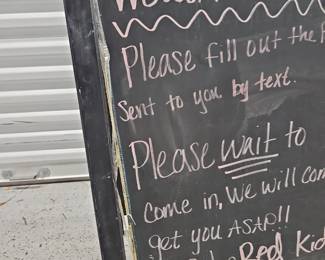 Please fill out the
sent to you by text.
Please wait to
come in, We will
get you ASAP!!
Kid